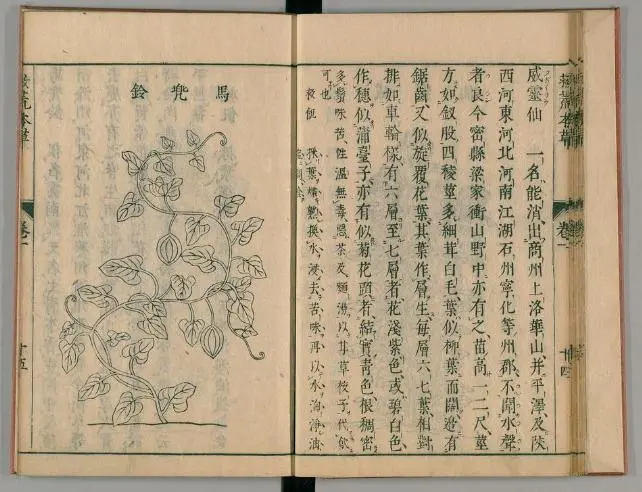 威靈仙 一名能消出商州上洛華山并平澤及陝
西河東河北河南江湖石州寧化等州郡不聞水聲
者良今密縣梁家衝山野中亦有之苗高一二尺莖
方如釵股四稜莖多細茸白毛葉似柳葉而闊邊有
鋸齒又似旋覆花葉其葉作層生每層六七葉相對
排如車輪樣有六層至七層者花淺紫色或碧白色
作穗似蒲臺子亦有似菊花頭者結實青色根稠密
多鬚味苦性溫無毒惡茶及麵湯以甘草梔子代飲
可也
救飢 採葉煠熟換水浸去苦味再以水淘淨油
救荒本草
卷二
十四
馬兜鈴
救荒本草
卷二
十五